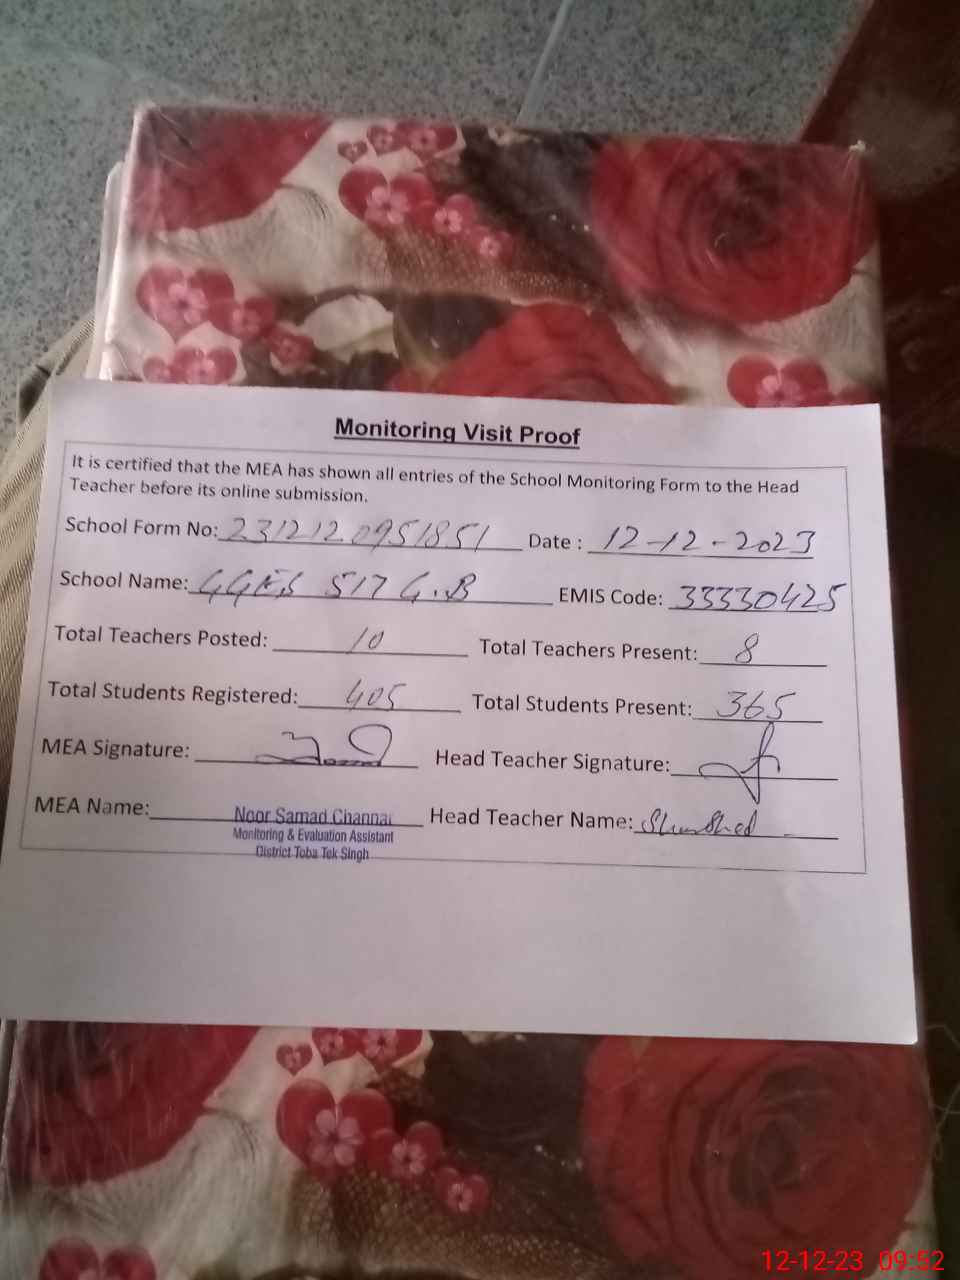 Monitoring Visit Proof
It is certified that the MEA has shown all entries of the School Monitoring Form to the Head
Teacher before its online submission.
School Form No: 2312120951851 Date : 12-12-2023
School Name: GGES 517 G.B EMIS Code: 33330425
Total Teachers Posted: 10 Total Teachers Present: 8
Total Students Registered: 405 Total Students Present: 365
MEA Signature: Head Teacher Signature:
MEA Name: Noor Samad Channar Head Teacher Name:
Monitoring & Evaluation Assistant
District Toba Tek Singh
12-12-23 09:52